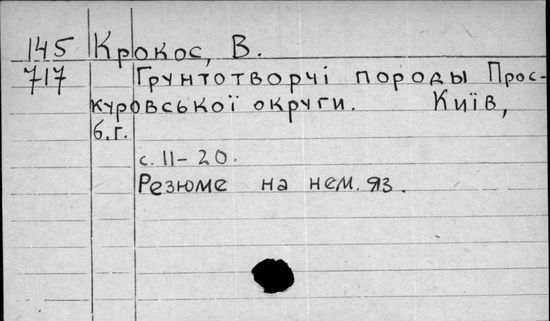 145 Крокос, В.
717 Грунтотворчі породы Прос-
куровської округи. Київ,
б.г.
с. 11-20.
Резюме на нем. яз.